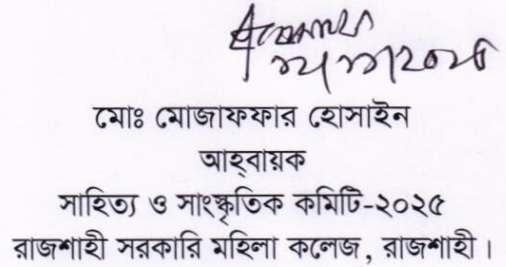 মোঃ মোজাফফার হোসাইন
আহ্বায়ক
সাহিত্য ও সাংস্কৃতিক কমিটি-২০২৫
রাজশাহী সরকারি মহিলা কলেজ, রাজশাহী।